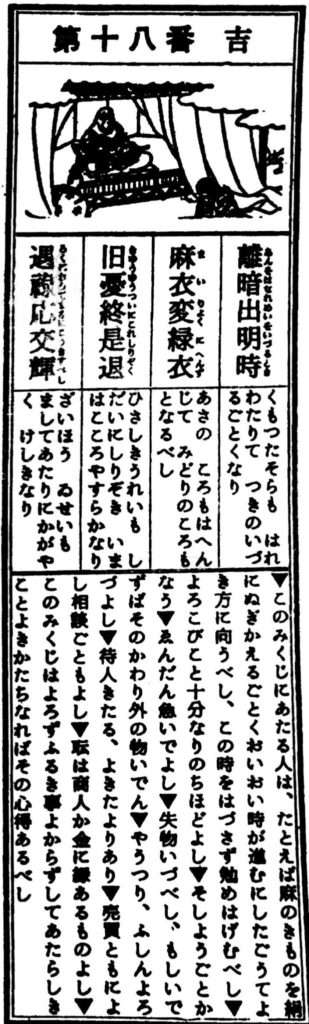 第十八番 吉
離暗出明時
あんをはなれめいをいづるとき
麻衣変緑衣
まいりょくいにへんず
旧憂終是退
きゆうゆうついにこれしりぞく
遇禄応交輝
くもつたそらも はれ
わたりて つきのいづ
るごとくなり
あさの ころもはへん
じて みどりのころも
となるべし
ひさしきうれいも し
だいにしりぞき いま
はこころやすらかなり
ざいほう ゐせいも
ましてあたりにかがや
く けしきなり
▼このみくじにあたる人は、たとえば麻のきものを絹
にぬぎかえるごとくおいおい時が進むにしたごうてよ
き方に向うべし、この時をはづさず勉めはげむべし▼
よろこびこと十分なりのちほどよし▼そしようごとか
なう▼ゑんだん急いでよし▼失物いづべし、もしいで
ずばそのかわり外の物いでん▼やうつり、ふしんよろ
づよし▼待人きたる、よきたよりあり▼売買ともによ
し相談ごともよし▼転は商人か金に縁あるものよし▼
このみくじはよろずふるき事よからずしてあたらしき
ことよきかたちなればその心得あるべし